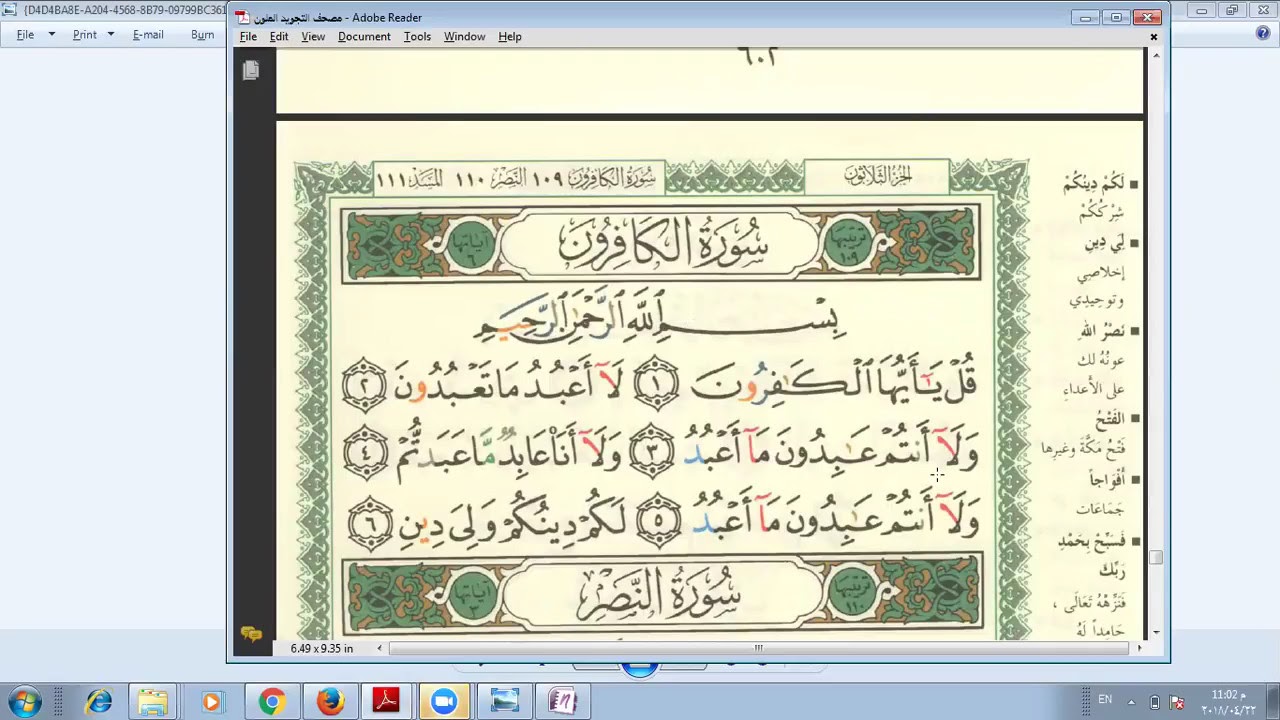 {D4D4BA8E-A204-4568-8B79-09799BC361
File Print E-mail Burn
مصحف التجويد الملون - Adobe Reader
File Edit View Document Tools Window Help
٦٠٢
الجزء الثلاثون
سورة الكافرون ١٠٩ النصر ١١٠ المسد ١١١
ترتيبها ١٠٩
سُورَةُ الكَافِرُونَ
آياتها ٦
بِسْمِ ٱللَّهِ ٱلرَّحْمَٰنِ ٱلرَّحِيمِ
قُلْ يَـٰٓأَيُّهَا ٱلْكَـٰفِرُونَ ١ لَآ أَعْبُدُ مَا تَعْبُدُونَ ٢
وَلَآ أَنتُمْ عَـٰبِدُونَ مَآ أَعْبُدُ ٣ وَلَآ أَنَا۠ عَابِدٌ مَّا عَبَدتُّمْ ٤
وَلَآ أَنتُمْ عَـٰبِدُونَ مَآ أَعْبُدُ ٥ لَكُمْ دِينُكُمْ وَلِىَ دِينِ ٦
ترتيبها ١١٠
سُورَةُ النَّصْرِ
آياتها ٣
لَكُمْ دِينُكُمْ
شِرْكُكُمْ
لِي دِينِ
إخلاصِي
وتوحيدِي
نَصْرُ اللهِ
عونُهُ لك
على الأعداءِ
الفَتْحُ
فَتْحُ مَكَّةَ وغيرِها
أَفْوَاجاً
جَمَاعَات
فَسَبِّحْ بِحَمْدِ
رَبِّكَ
فَنَزِّهْهُ تَعَالَى ،
حَامِداً لَهُ
6.49 x 9.35 in
EN
11:02 م
٢٠١٨/٠٤/٢٢